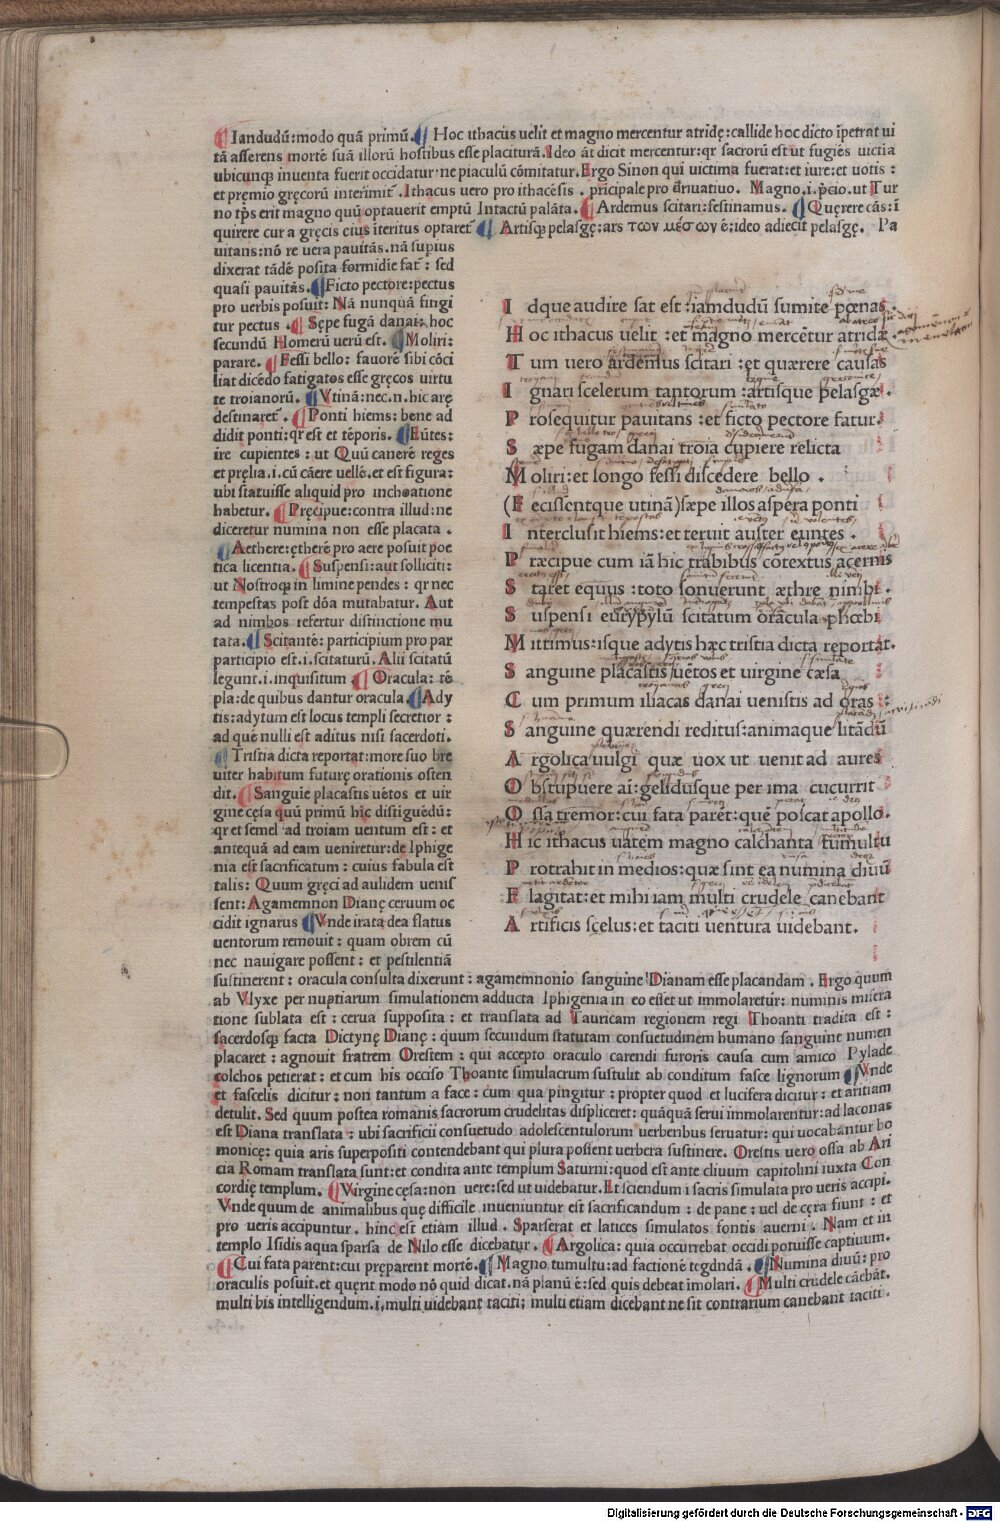 Iandudū:modo quā primū. Hoc ithacus uelit et magno mercentur atridę:callide hoc dicto īpetrat ui
tā asserens mortē suā illorū hostibus esse placiturā. Ideo āt dicit mercentur:qr sacrorū est ut fugiēs uictia
ubicunq; inuenta fuerit occidatur:ne piaculū cōmitatur. Ergo Sinon qui uictima fuerat:et iure:et uotis:
et premio gręcorū interimit. Ithacus uero pro ithacēsis. prīcipale pro driuatiuo. Magno.i.pcio.ut Tur
no tps erit magno quū optauerit emptū Intactū palāta. Ardemus scitari:festinamus. Quęrere cās:ī
quirere cur a gręcis eius īteritus optaret Artisq; pelasgę:ars των μέσων ē:ideo adiecit pelasgę. Pa
uitans:nō re uera pauitās.nā supius
dixerat tādē posita formidie fat: sed
quasi pauitās. Ficto pectore:pectus
pro uerbis posuit: Nā nunquā fingi
tur pectus. Sępe fugā danai: hoc
secundū Homerū uerū est. Moliri:
parare. Fessi bello: fauorē sibi cōci
liat dicēdo fatigatos esse gręcos uirtu
te troianorū. Vtinā:nec.n.hic arę
destinaret. Ponti hiems: bene ad
didit ponti:qr est et tēporis. Eūtes:
ire cupientes: ut Quū canerē reges
et pręlia.i.cū cāere uellē.et est figura:
ubi statuisse aliquid pro inchoatione
habetur. Pręcipue:contra illud:ne
diceretur numina non esse placata.
Aethere:ętherē pro aere posuit poe
tica licentia. Suspensi:aut solliciti:
ut Nostroq; in limine pendes: qr nec
tempestas post dōa mutabatur. Aut
ad nimbos refertur distinctione mu
tata. Scitantē: participium pro par
participio est.i.scitaturū. Alii scitatū
legunt.i.inquisitum Oracula: tē
pla:de quibus dantur oracula. Ady
tis:adytum est locus templi secretior:
ad quē nulli est aditus nisi sacerdoti.
Tristia dicta reportat:more suo bre
uiter habitum futurę orationis osten
dit. Sanguīe placastis uētos et uir
gine cęsa quū primū hic distīguēdū:
qr et semel ad troiam uentum est: et
antequā ad eam ueniretur:de Iphige
nia est sacrificatum: cuius fabula est
talis: Quum gręci ad aulidem uenis
sent: Agamemnon Dianę ceruum oc
cidit ignarus Vnde irata dea flatus
uentorum remouit: quam obrem cū
nec nauigare possent: et pestilentiā
I dque audire sat est:iamdudū sumite pœnas
H oc ithacus uelit:et magno mercētur atridæ
T um uero ardemus scitari:et quærere causas
I gnari scelerum tantorum:artisque pelasgæ.
P rosequitur pauitans:et ficto pectore fatur.
S æpe fugam danai troia cupiere relicta
M oliri:et longo fessi discedere bello.
(F ecissentque utinā)sæpe illos aspera ponti
I nterclusit hiems:et terruit auster euntes.
P ræcipue cum iā hic trabibus cōtextus acernis
S taret equus:toto sonuerunt æthre nimbi.
S uspensi eurypylū scitatum oracula phœbi
M ittimus:isque adytis hæc tristia dicta reportat.
S anguine placastis uētos et uirgine cæsa
C um primum iliacas danai uenistis ad oras:
S anguine quærendi reditus:animaque litādū
A rgolica uulgi quæ uox ut uenit ad aures
O bstupuere aī:gelidusque per ima cucurrit
O ssa tremor:cui fata parēt:quē poscat apollo.
H ic ithacus uatem magno calchanta tumultu
P rotrahit in medios:quæ sint ea numina diuū
F lagitat:et mihi iam multi crudele canebant
A rtificis scelus:et taciti uentura uidebant.
sustinerent: oracula consulta dixerunt: agamemnonio sanguine Dianam esse placandam. Ergo quum
ab Vlyxe per nuptiarum simulationem adducta Iphigenia in eo esset ut immolaretur: numinis misera
tione sublata est: cerua supposita: et translata ad Tauricam regionem regi Thoanti tradita est:
sacerdosq; facta Dictynę Dianę: quum secundum statutam consuetudinem humano sanguine numen
placaret: agnouit fratrem Orestem: qui accepto oraculo carendi furoris causa cum amico Pylade
colchos petierat: et cum his occiso Thoante simulacrum sustulit ab conditum fasce lignorum Vnde
et fascelis dicitur: non tantum a face: cum qua pingitur: propter quod et lucifera dicitur: et aritiam
detulit. Sed quum postea romanis sacrorum crudelitas displiceret: quāquā serui immolarentur:ad laconas
est Diana translata: ubi sacrificii consuetudo adolescentulorum uerberibus seruatur: qui uocabantur bo
monicę: quia aris superpositi contendebant qui plura possent uerbera sustinere. Orestis uero ossa ab Ari
cia Romam translata sunt:et condita ante templum Saturni:quod est ante cliuum capitolini iuxta Con
cordię templum. Virgine cęsa:non uere:sed ut uidebatur. Et sciendum i sacris simulata pro ueris accipi.
Vnde quum de animalibus quę difficile inueniuntur est sacrificandum: de pane: uel de cęra fiunt: et
pro ueris accipuntur. hinc est etiam illud. Sparserat et latices simulatos fontis auerni. Nam et in
templo Isidis aqua sparsa de Nilo esse dicebatur. Argolica: quia occurrebat occidi potuisse captiuum.
Cui fata parent:cui pręparent mortē. Magno tumultu:ad factionē tegdndā. Numina diuū: pro
oraculis posuit.et quęrit modo nō quid dicat.nā planū ē:sed quis debeat imolari. Multi crudele cāebāt.
multi bis intelligendum.i,multi uidebant taciti; multi etiam dicebant ne sit contrarium canebant taciti.
Digitalisierung gefördert durch die Deutsche Forschungsgemeinschaft - DFG